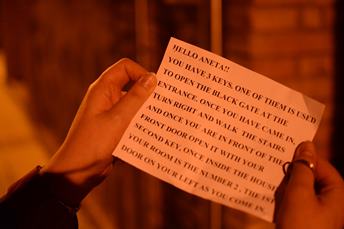 HELLO ANETA!!
YOU HAVE 3 KEYS. ONE OF THEM IS USED
TO OPEN THE BLACK GATE AT THE
ENTRANCE. ONCE YOU HAVE COME IN,
TURN RIGHT AND WALK THE STAIRS
AND ONCE YOU ARE IN FRONT OF THE
FRONT DOOR OPEN IT WITH YOUR
SECOND KEY. ONCE INSIDE THE HOUSE
YOUR ROOM IS THE NUMBER 2 , THE
DOOR ON YOUR LEFT AS YOU COME